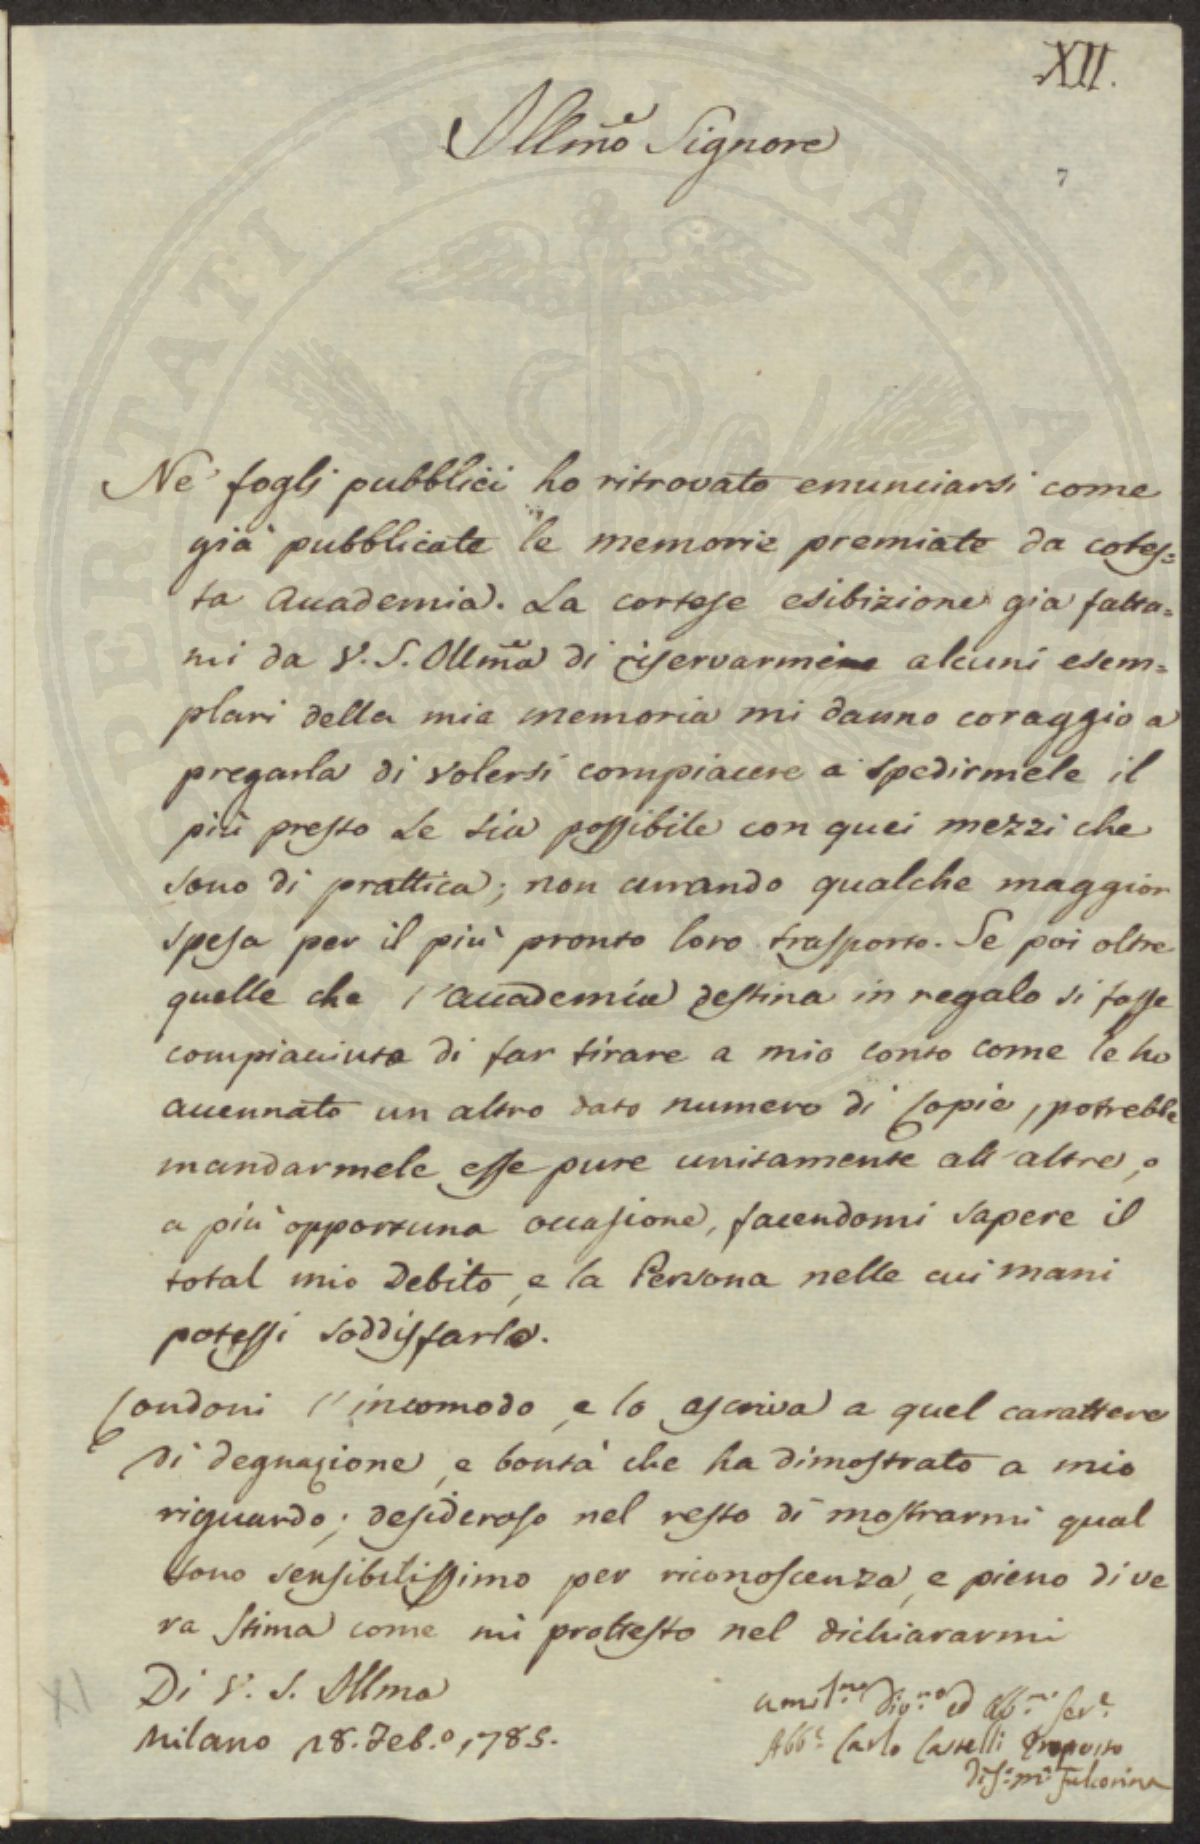 XII.
Illmo Signore
7
Ne' fogli pubblici ho ritrovato enunciarsi come
già pubblicate le memorie premiate da cotes=
ta Accademia. La cortese esibizione già fatta=
mi da V. S. Illma di riservarmi alcuni esem=
plari della mia memoria mi danno coraggio a
pregarla di volersi compiacere a spedirmele il
più presto Le sia possibile con quei mezzi che
sono di prattica; non curando qualche maggior
spesa per il più pronto loro trasporto. Se poi oltre
quelle che l'accademia destina in regalo si fosse
compiacciuta di far tirare a mio conto come le ho
accennato un altro dato numero di Copie, potrebbe
mandarmele esse pure unitamente all'altre, o
a più opportuna occasione, facendomi sapere il
total mio Debito, e la Persona nelle cui mani
potessi soddisfarlo.
Condoni l'incomodo, e lo ascriva a quel carattere
di degnazione, e bontà che ha dimostrato a mio
riguardo; desideroso nel resto di mostrarmi qual
sono sensibilissimo per riconoscenza, e pieno di ve
ra stima come mi prottesto nel dichiararmi
Di V. S. Illma
Milano 18. Feb.o 1785.
umil.mo div.mo ed obb.mo ser.e
Abb.e Carlo Castelli Proposto
di S.a M.a Fulcorina
XI
PUBLICAE